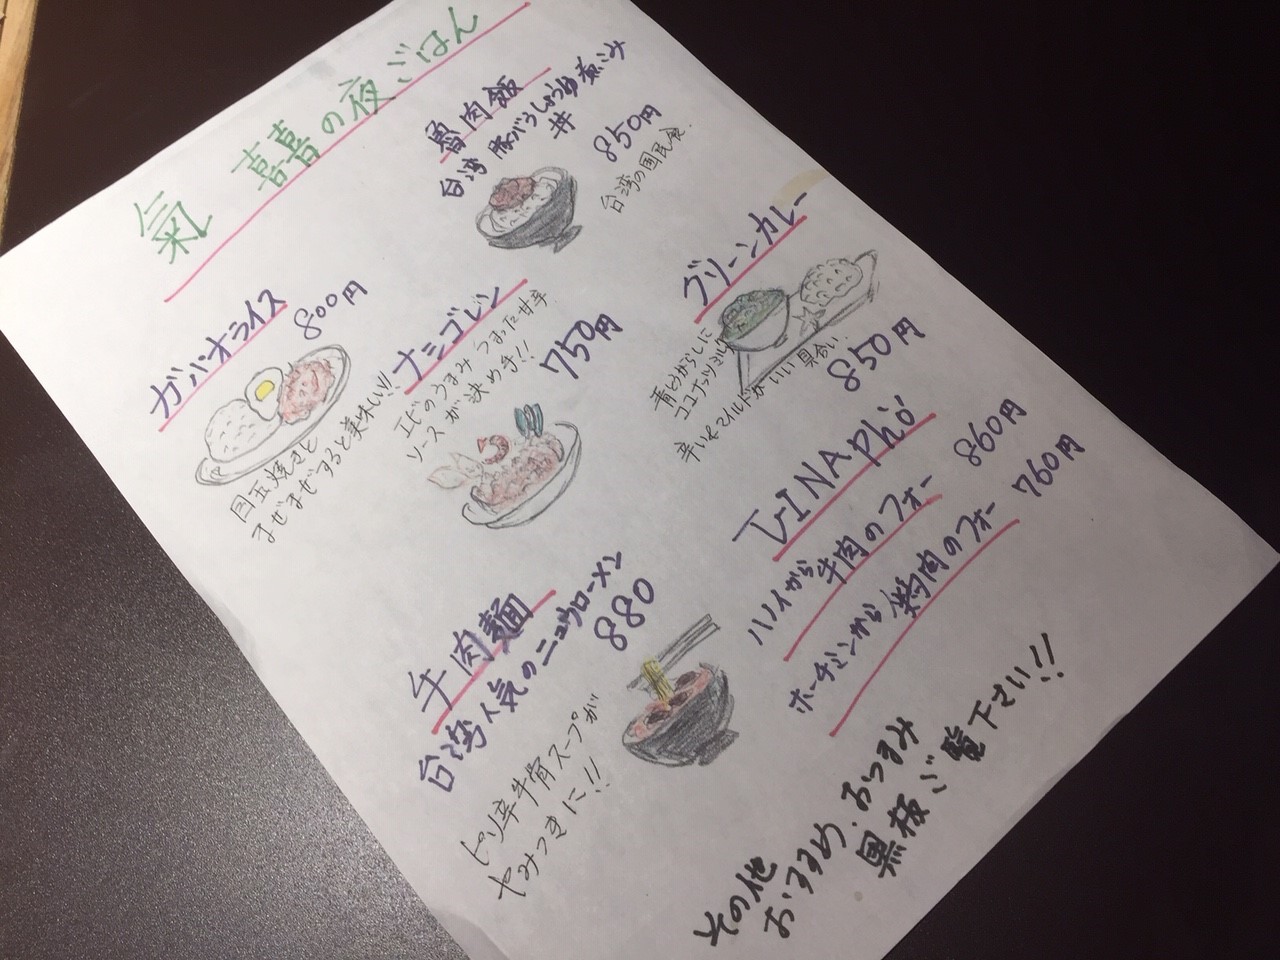 氣 囍の夜ごはん
魯肉飯
台湾 豚バラしょうゆ煮こみ
丼
850円
台湾の国民食.
ガパオライス 800円
目玉焼きと
まぜまぜすると美味しい!!
ナシゴレン
エビのうまみつまった甘辛
ソースが決め手!!
750円
グリーンカレー
青とうがらしに
ココナッツミルク
辛い&マイルドがいい具合い.
850円
牛肉麺
台湾人気のニュウローメン
880
ピリ辛牛骨スープが
やみつきに!!
Phở
ハノイから牛肉のフォー 860円
ホーチミンから鶏肉のフォー 760円
その他
おすすめ.おつまみ
黒板ご覧下さい!!